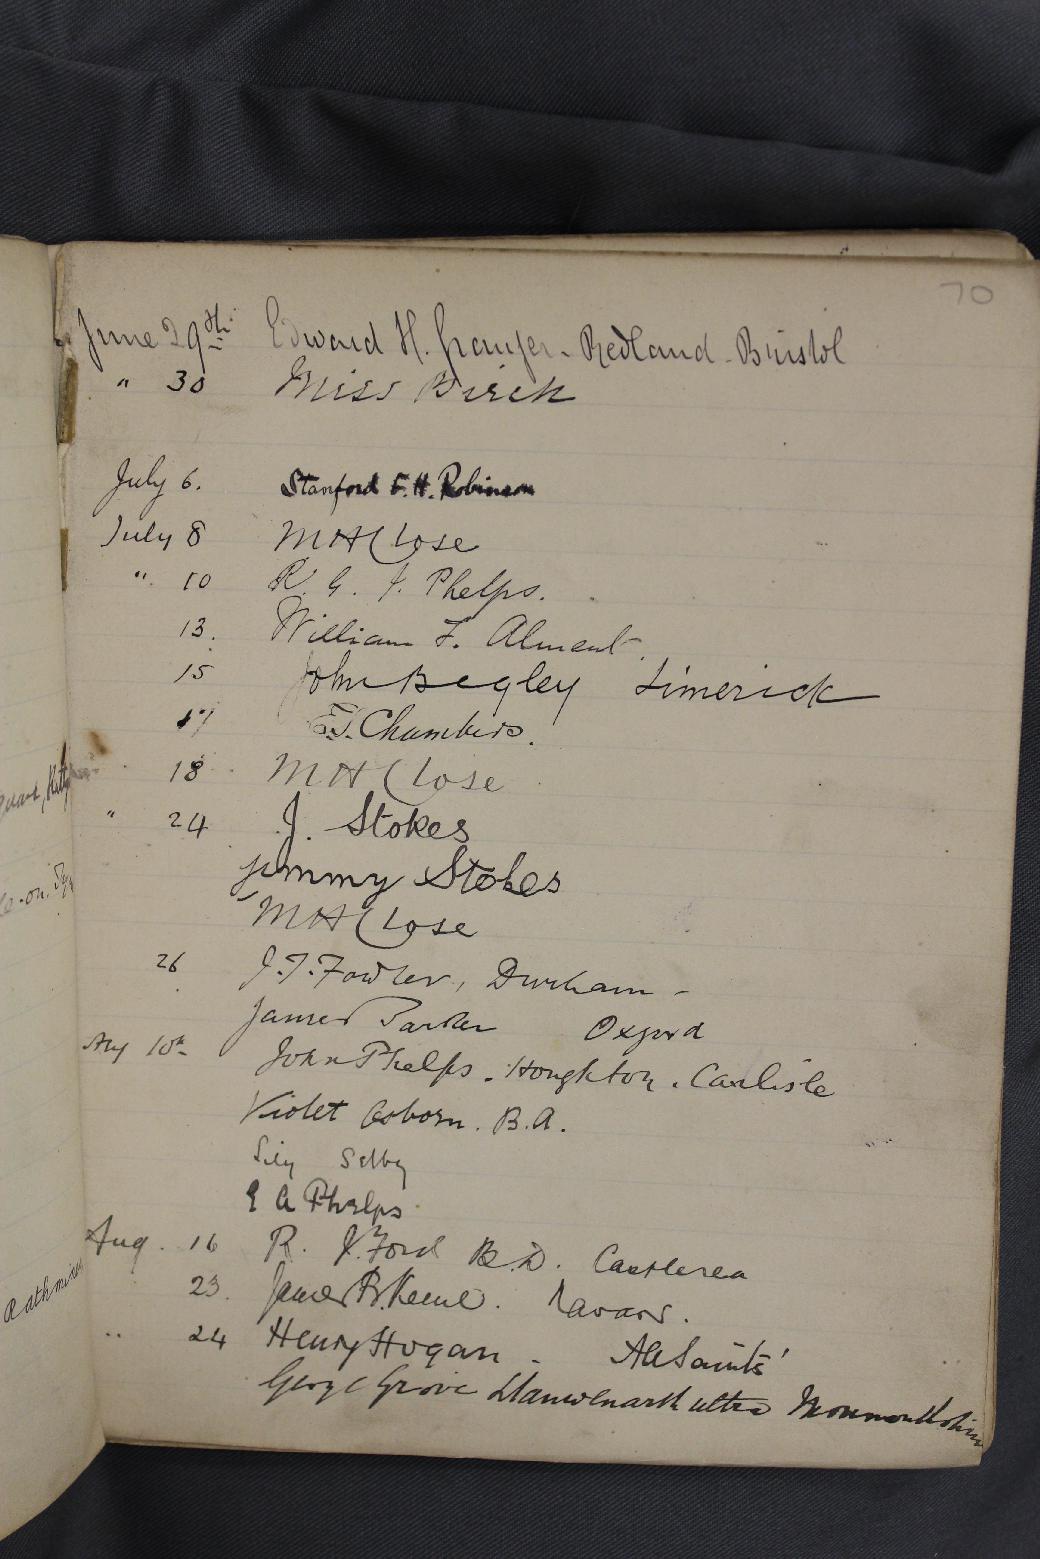 70
June 29th Edward H. Granger - Redland - Bristol
" 30 Miss Birch
July 6. Stanford F. H. Robinson
July 8 M H Close
" 10 R. G. J. Phelps.
13. William F. Alment.
15 John Begley Limerick
17 Chambers.
18 M H Close
" 24 J. Stokes
Jimmy Stokes
M H Close
26 J. T. Fowler, Durham -
James Parker Oxford
Aug 10th John Phelps. Houghton. Carlisle
Violet Osborn. B.A.
Lily Selby
E A Phelps
Aug. 16 R. J. Ford B.D. Castlerea
23. James B. Keene. Navan.
" 24 Henry Hogan. All Saints'
George Grove Llanwenarth ultra Monmouthshire
Rathmines